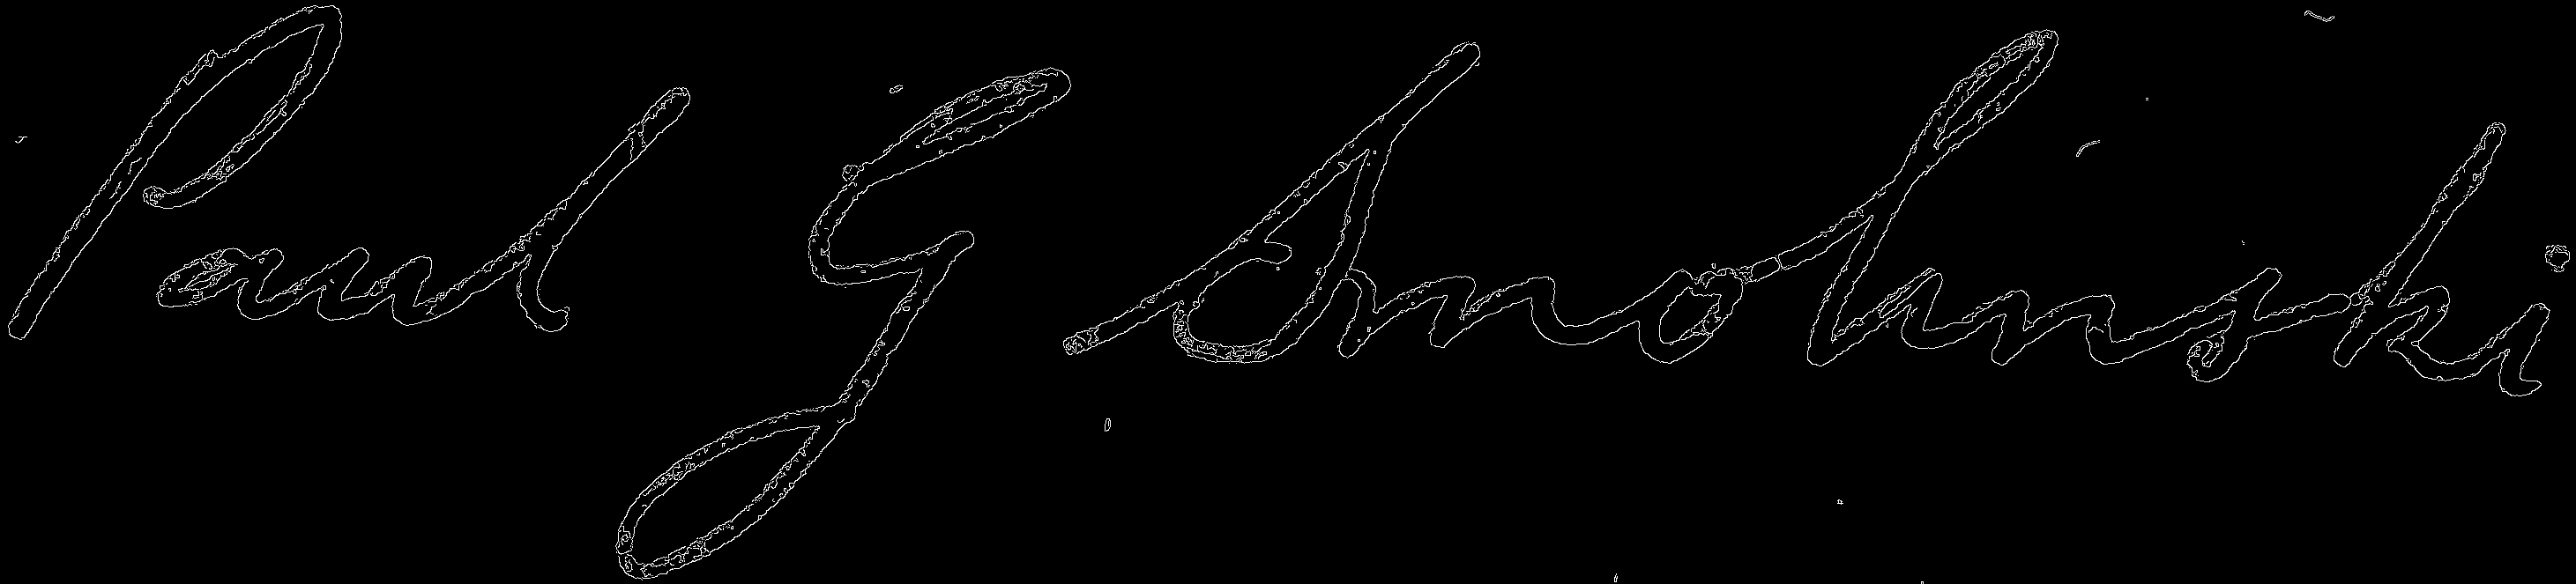 Paul G Smolinski